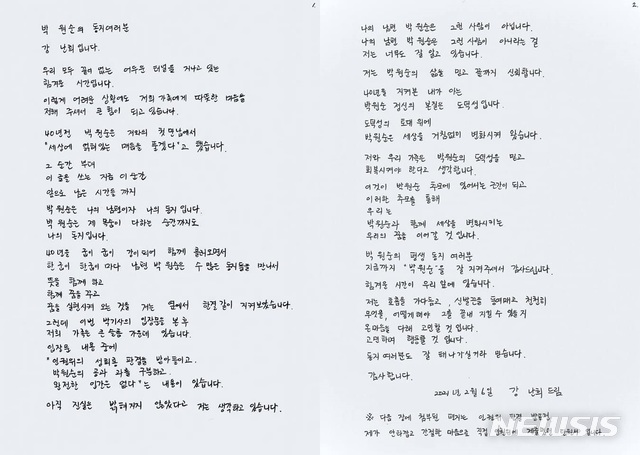 1.
박 원순의 동지여러분
강 난희 입니다.
우리 모두 끝이 없는 어두운 터널을 지나고 있는
힘겨운 시간입니다.
이렇게 어려운 상황에도 저희 가족에게 따뜻한 마음을
전해 주셔서 큰 힘이 되고 있습니다.
40년전 박원순은 저와의 첫 만남에서
"세상에 얽혀있는 매듭을 풀겠다"고 했습니다.
그 순간 부터
이 글을 쓰는 지금 이 순간
앞으로 남은 시간들 까지
박 원순은 나의 남편이자 나의 동지입니다.
박 원순은 제 목숨이 다하는 순간까지도
나의 동지입니다.
40년을 굽이 굽이 강이되어 함께 흘러오면서
한 굽이 한굽이 마다 남편 박 원순은 수 많은 동지들을 만나서
뜻을 함께 하고
함께 꿈을 꾸고
꿈을 실현시켜 오는 것을 저는 옆에서 한결같이 지켜보았습니다.
그런데 이번 박기사의 입장문을 본 후
저희 가족은 큰 슬픔 가운데 있습니다.
입장문 내용 중에
"인권위의 성희롱 판결을 받아들이고,
박원순의 공과 과를 구분하고,
완전한 인간은 없다"는 내용이 있습니다.
아직 진실은 밝혀지지 않았다고 저는 생각하고 있습니다.
2.
나의 남편 박 원순은 그런 사람이 아닙니다.
나의 남편 박 원순은 그런 사람이 아니라는 걸
저는 너무도 잘 알고 있습니다.
저는 박원순의 삶을 믿고 끝까지 신뢰합니다.
40년을 지켜본 내가 아는
박원순 정신의 본질은 도덕성입니다.
도덕성의 토대 위에
박원순은 세상을 거침없이 변화시켜 왔습니다.
저와 우리 가족은 박원순의 도덕성을 믿고
회복시켜야 한다고 생각합니다.
이것이 박원순 추모에 있어서는 근간이 되고
이러한 추모를 통해
우리는
박원순과 함께 세상을 변화시키는
우리의 꿈을 이어갈 것 입니다.
박 원순의 평생 동지 여러분
지금까지 "박원순"을 잘 지켜주셔서 감사드립니다.
힘겨운 시간이 우리 앞에 있습니다.
저는 호흡을 가다듬고, 신발끈을 동여매고 천천히
무엇을, 어떻게 해야 그를 끝내 지킬 수 있을지
온마음을 다해 고민할 것 입니다.
고민하며 행동할 것 입니다.
동지 여러분도 잘 해 나가실거라 믿습니다.
감사합니다.
2021년 2월 6일 강 난희 드림
※ 다음 장에 첨부된 편지는 인권위 판결 발표전
제가 안타깝고 간절한 마음으로 직접
NEWSIS